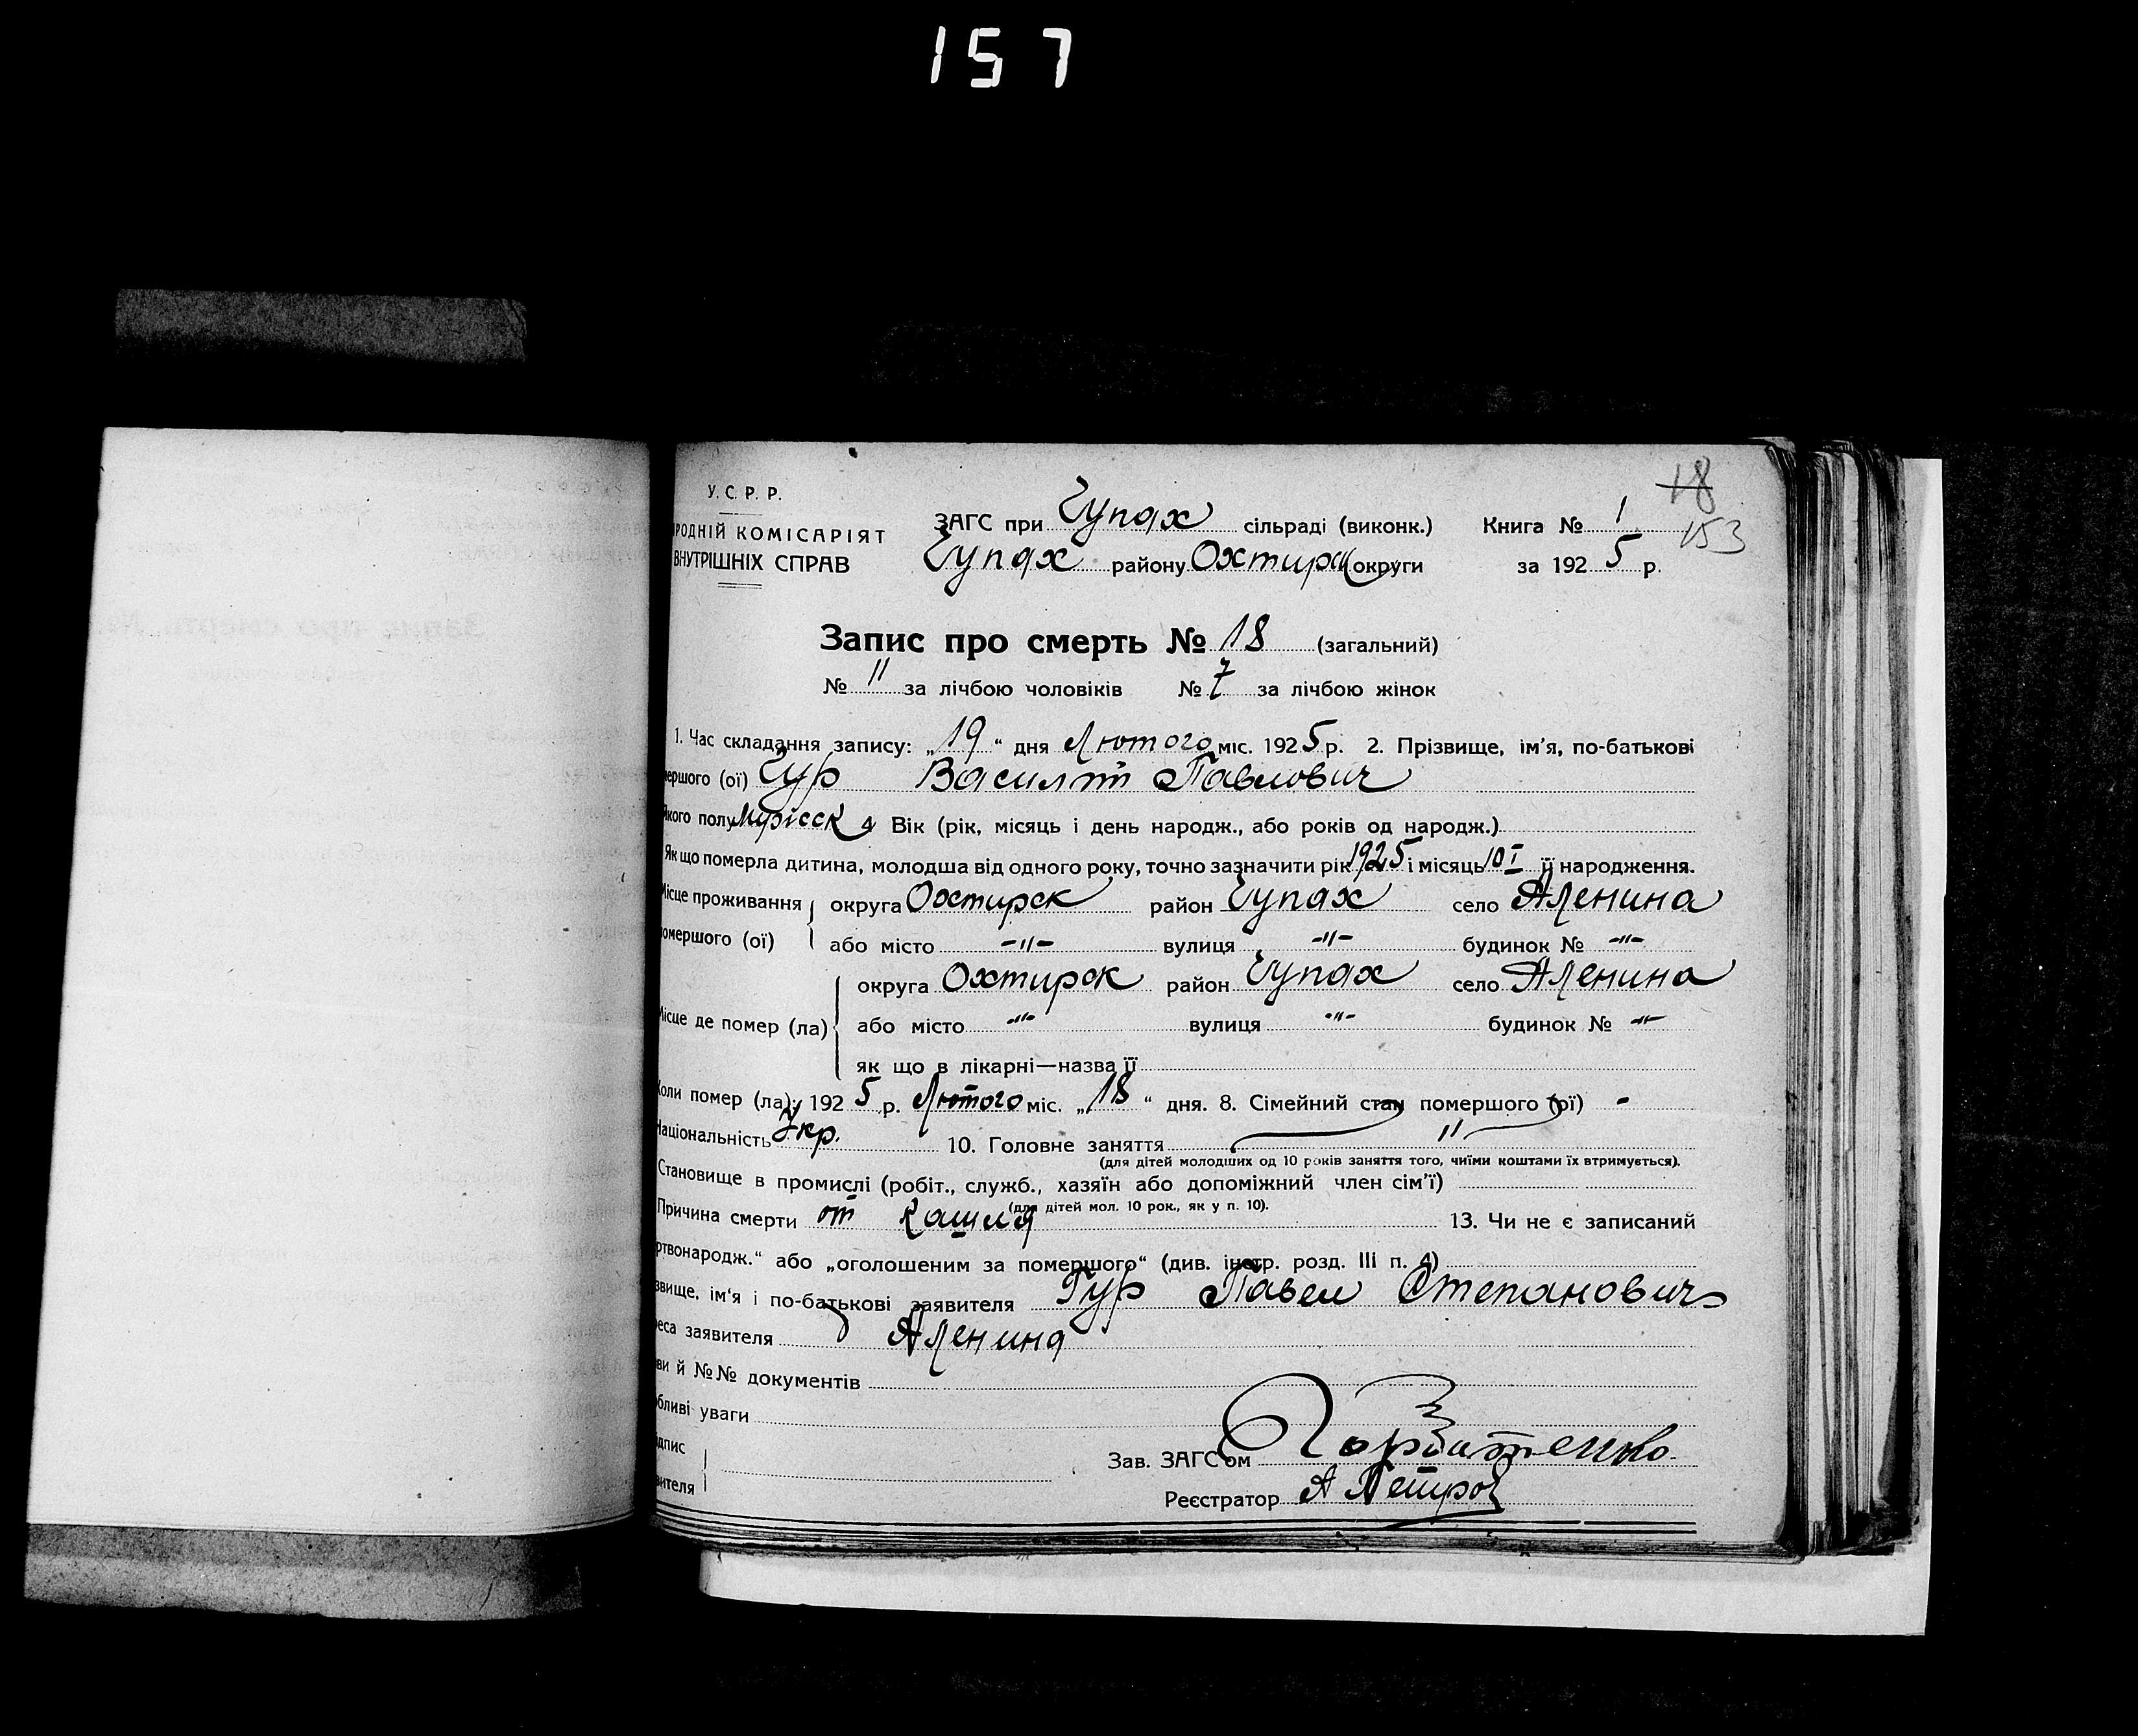 157
18
153
У. С. Р. Р.
РОДНІЙ КОМІСАРІЯТ
ВНУТРІШНІХ СПРАВ
ЗАГС при Чупах сільраді (виконк.) Книга № 1
Чупах району Охтирск округи за 1925 р.
Запис про смерть № 18 (загальний)
№ 11 за лічбою чоловіків № 7 за лічбою жінок
1. Час складання запису: „19“ дня Лютого міс. 1925 р. 2. Прізвище, ім'я, по-батькові
мершого (ої) Гур Василт Павлович
якого полу 4 Вік (рік, місяць і день народж., або років од народж.)
Як що померла дитина, молодша від одного року, точно зазначити рік 1925 і місяць 10 I її народження.
Місце проживання округа Охтирск район Чупах село Аленина
омершого (ої) або місто -„- вулиця -„- будинок № -„-
округа Охтирск район Чупах село Аленина
Місце де помер (ла) або місто -„- вулиця -„- будинок № -„-
як що в лікарні—назва її
Коли помер (ла): 1925 р. Лютого міс. „18“ дня. 8. Сімейний стан помершого (ої) -
Національність Укр. 10. Головне заняття "
(для дітей молодших од 10 років заняття того, чиїми коштами їх втримується).
Становище в промислі (робіт., служб., хазяїн або допоміжний член сім'ї)
(для дітей мол. 10 рок., як у п. 10).
Причина смерти от кашля 13. Чи не є записаний
ртвонародж.“ або „оголошеним за помершого“ (див. інстр. розд. III п. 4)
звище, ім'я і по-батькові заявителя Гур Павел Степанович
реса заявителя д Аленина
ви й №№ документів
бливі уваги
ідпис
вителя
Зав. ЗАГС'ом Горбатенко
Реєстратор А Петров